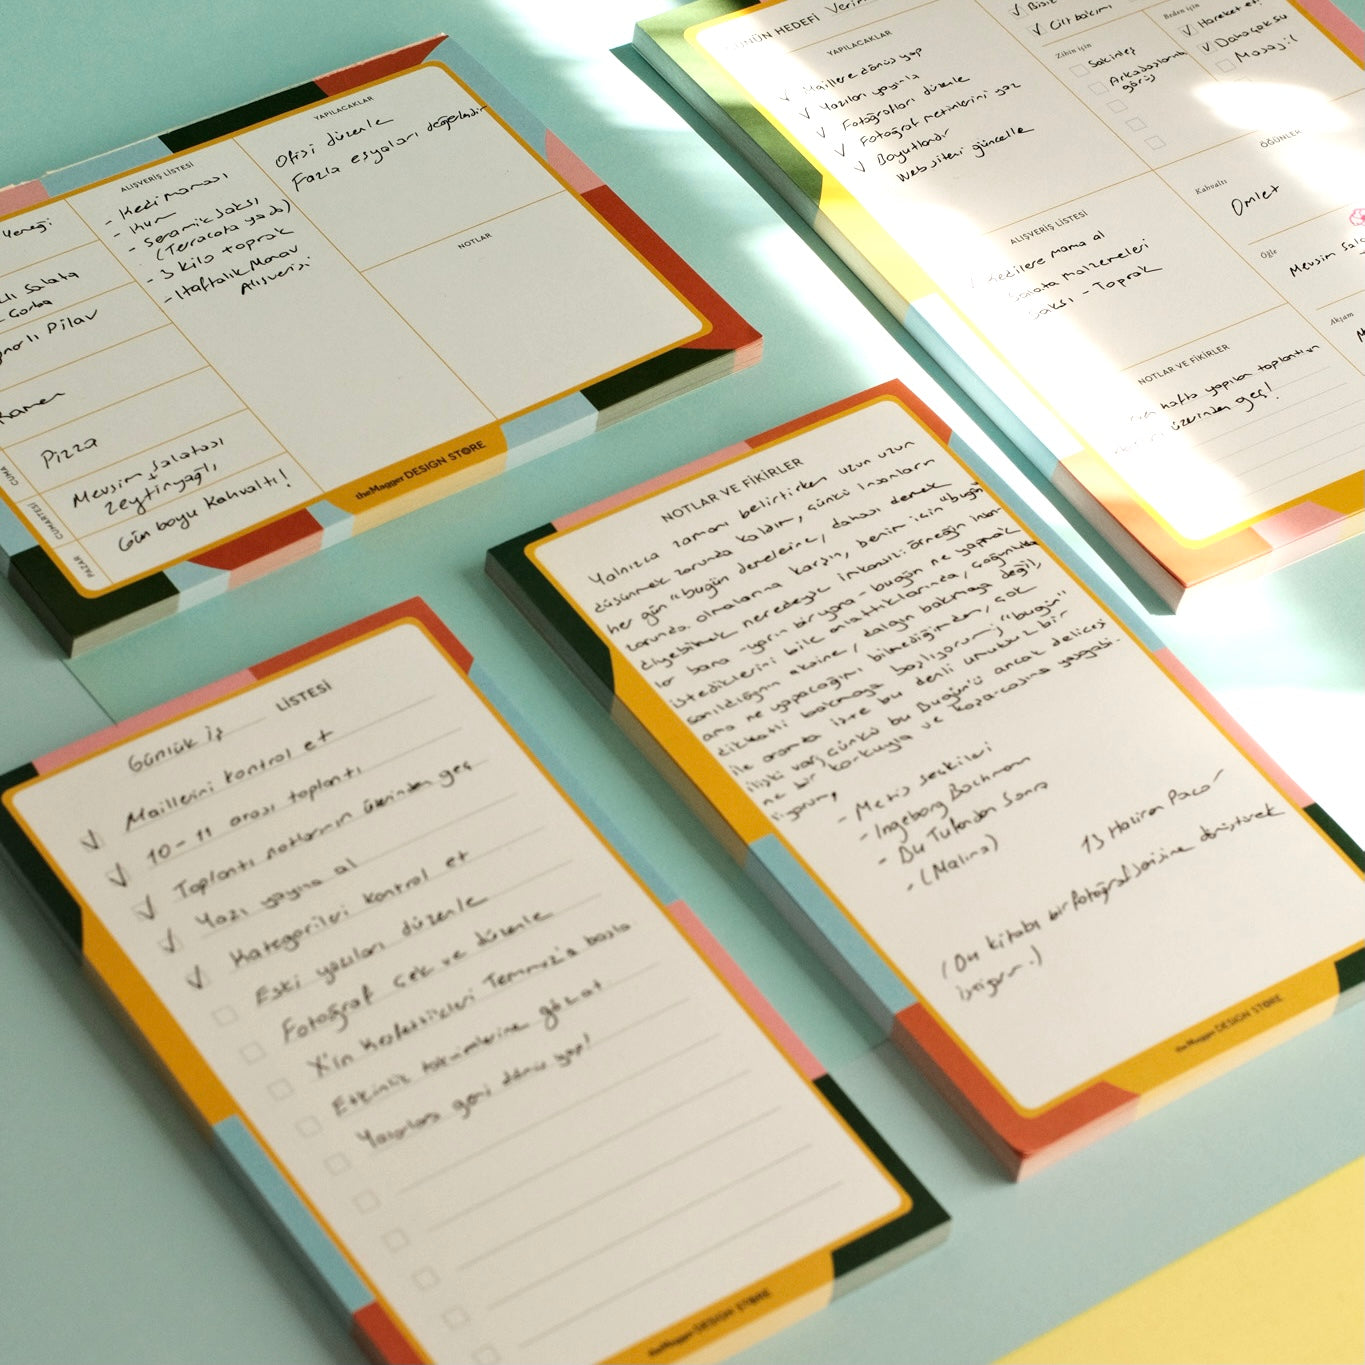 Yemeği
Salata
Çorba
Pilav
Ramen
Pizza
Mevsim Salatası
Zeytinyağlı,
Gün boyu kahvaltı!
CUMA
CUMARTESİ
PAZAR
ALIŞVERİŞ LİSTESİ
- Kedi maması
- Kum
- Seramik Saksı
(Terracota ya da)
- 3 kilo toprak
- Haftalık Manav
Alışverişi
YAPILACAKLAR
Ofisi düzenle
Fazla eşyaları değerlendir
NOTLAR
theMagger DESIGN STORE
GÜNÜN HEDEFİ
YAPILACAKLAR
Maillere dönüş yap
Yazıları yayınla
Fotoğrafları düzenle
Fotoğraf metinlerini yaz
Boyutlandır
Web siteni güncelle
Cilt bakımı
Zihin için
Sakinleş
Arkadaşlarınla
görüş
Beden için
Hareket et!
Daha çok su
Masaj
ALIŞVERİŞ LİSTESİ
Kedilere mama al
Salata malzemeleri
Saksı - Toprak
ÖĞÜNLER
Kahvaltı
Omlet
Öğle
Mevsim
Akşam
NOTLAR VE FİKİRLER
hafta yapılan toplantının
üzerinden geç!
Günlük iş LİSTESİ
Maillerini kontrol et
10-11 arası toplantı
Toplantı notlarının üzerinden geç
Yazı yayına al
Kategorileri kontrol et
Eski yazıları düzenle
Fotoğraf çek ve düzenle
X'in keşfettikleri Temmuz'a başla
Etkinlik takvimlerine gözat
Yazılara geri dönüş yap!
theMagger DESIGN STORE
NOTLAR VE FİKİRLER
Yalnızca zamanı belirtirken uzun uzun
düşünmek zorunda kaldım, çünkü insanların
her gün "bugün" demelerine, dahası demek
zorunda olmalarına karşın, benim için "bugün"
diyebilmek neredeyse imkansız: örneğin insan-
lar bana -yarın bir yana- bugün ne yapmak
istediklerini bile anlattıklarında, çoğunlukla
sanıldığının aksine, dalgın bakmaya değil,
ama ne yapacağımı bilmediğimden, çok
dikkatli bakmaya başlıyorum; "bugün"
ile aramda işte bu denli umutsuz bir
ilişki var, çünkü bu Bugün'ü ancak delicesi
ne bir korkuyla ve koşarcasına yaşayabi-
liyorum,
- Metis seçkileri
- Ingeborg Bachmann
- Bu Tufandan Sonra
- (Malina)
13 Haziran
(Bu kitabı bir fotoğraf serisine dönüştürmek
istiyorum.)
theMagger DESIGN STORE